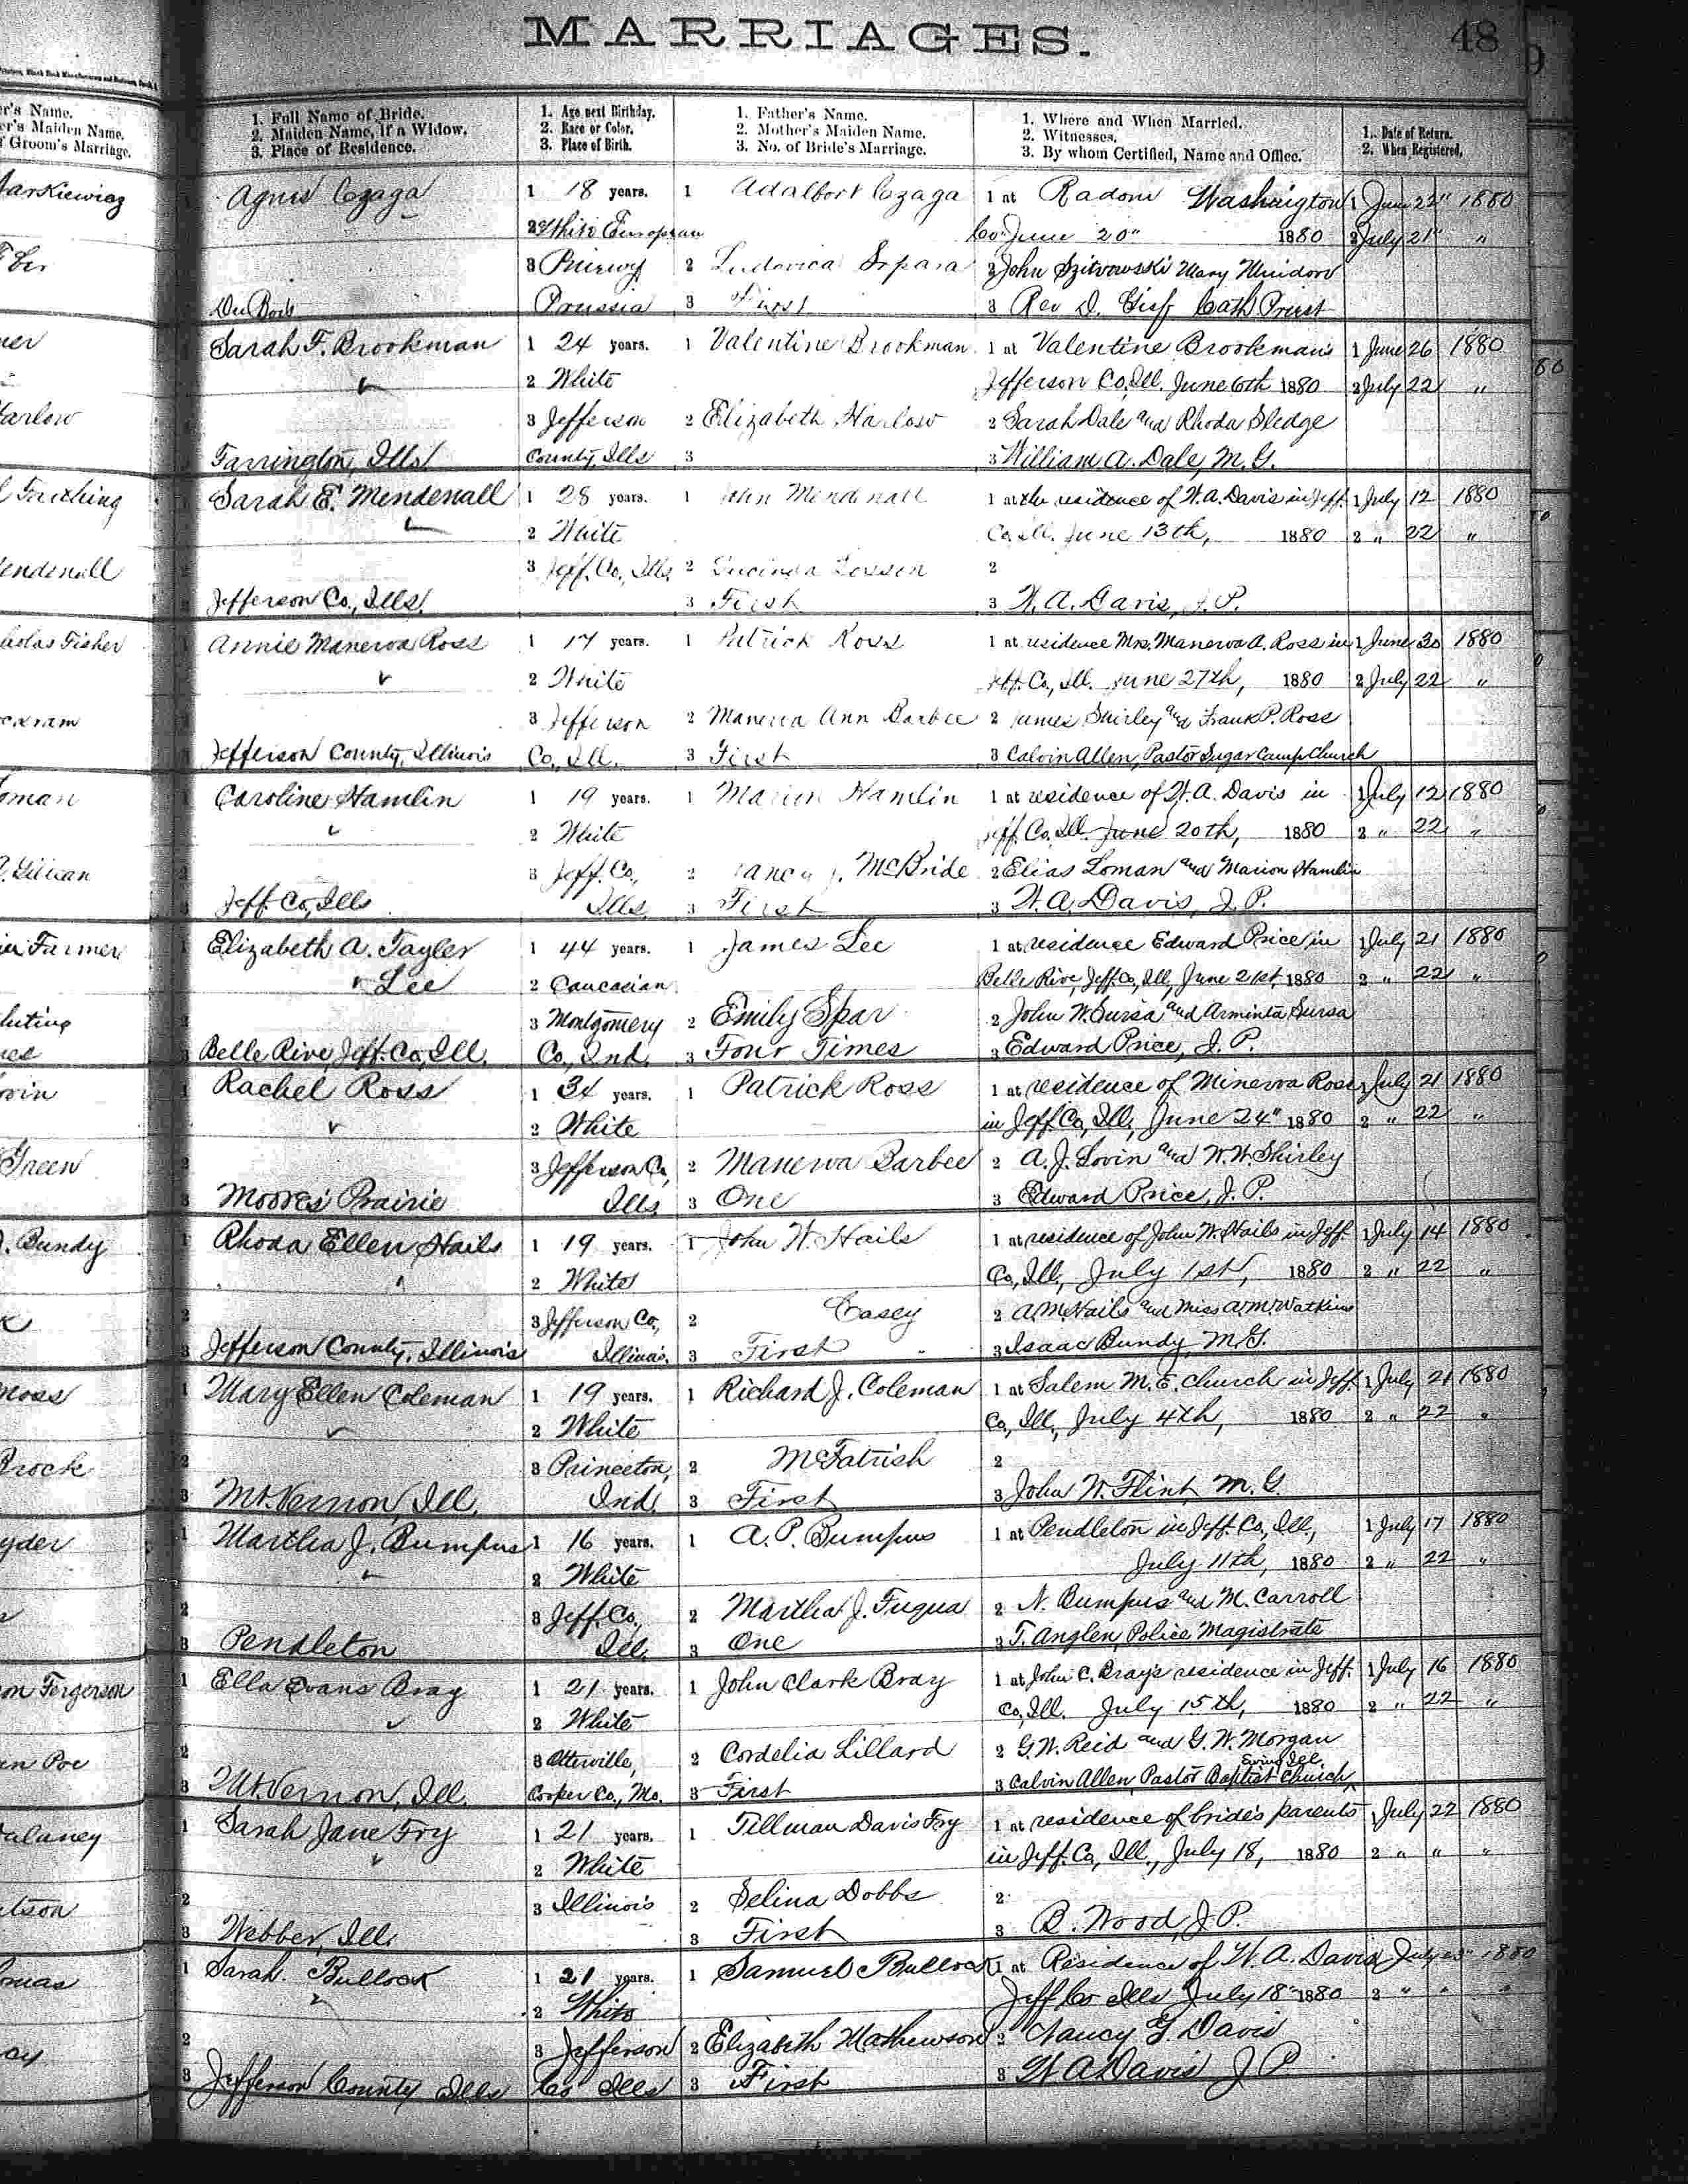 MARRIAGES.
48
er's Name.
er's Maiden Name.
f Groom's Marriage.
1. Full Name of Bride.
2. Maiden Name, If a Widow.
3. Place of Residence.
1. Age next Birthday.
2. Race or Color.
3. Place of Birth.
1. Father's Name.
2. Mother's Maiden Name.
3. No. of Bride's Marriage.
1. Where and When Married.
2. Witnesses.
3. By whom Certified, Name and Office.
1. Date of Return.
2. When Registered.
arkiewicz Agnes Czaga 1 18 years. 1 Adalbert Czaga 1 at Radom Washington 1 June 22" 1880
2 White European Co June 20" 1880 2 July 21" "
3 2 Ludovica 2 John Mary
Du Bois Prussia 3 First 3 Rev D. Cath Priest
Sarah F. Brookman 1 24 years. 1 Valentine Brookman 1 at Valentine Brookman's 1 June 26 1880
2 White Jefferson Co, Ill. June 6th 1880 2 July 22 "
arlow 3 Jefferson 2 Elizabeth Harlow 2 Sarah Dale and Rhoda Sledge
Farrington, Ills. County, Ills 3 3 William A. Dale, M.G.
Sarah E. Mendenall 1 28 years. 1 John Mendenall 1 at the residence of W.A. Davis in Jeff. 1 July 12 1880
2 White Co, Ill. June 13th, 1880 2 " 22 "
endenall 3 Jeff. Co., Ills. 2 Lucinda 2
Jefferson Co., Ills. 3 First 3 W.A. Davis, J.P.
holas Fisher Annie Manerva Ross 1 17 years. 1 Patrick Ross 1 at residence Mrs. Manerva A. Ross in 1 June 30 1880
2 White Jeff. Co., Ill. June 27th, 1880 2 July 22 "
3 Jefferson 2 Manerva Ann Barbee 2 James Shirley and Frank P. Ross
Jefferson County, Illinois Co., Ill. 3 First 3 Calvin Allen, Pastor Sugar Camp Church
oman Caroline Hamlin 1 19 years. 1 Marion Hamlin 1 at residence of W.A. Davis in 1 July 12 1880
2 White Jeff. Co., Ill. June 20th, 1880 2 " 22 "
3 Jeff. Co., 2 McBride 2 Elias Loman and Marion Hamlin
Jeff. Co, Ills Ills. 3 First 3 W.A. Davis, J.P.
Farmer Elizabeth A. Tayler 1 44 years. 1 James Lee 1 at residence Edward Price in 1 July 21 1880
Lee 2 Caucasian Belle Rive, Jeff. Co, Ill, June 21st, 1880 2 " 22 "
3 Montgomery 2 Emily Spar 2 John W. Sursa and Arminta Sursa
3 Belle Rive, Jeff. Co, Ill. Co., Ind. 3 Four Times 3 Edward Price, J.P.
Rachel Ross 1 34 years. 1 Patrick Ross 1 at residence of Minerva Ross 1 July 21 1880
2 White in Jeff Co, Ill, June 24" 1880 2 " 22 "
Green 2 3 Jefferson Co, 2 Manerva Barbee 2 A.J. Lovin and W.W. Shirley
3 Moores Prairie Ills 3 One 3 Edward Price, J.P.
J. Bundy 1 Rhoda Ellen Hails 1 19 years. 1 John W. Hails 1 at residence of John W. Hails in Jeff. 1 July 14 1880
2 White Co, Ill, July 1st, 1880 2 " 22 "
2 3 Jefferson Co, 2 Casey 2 A.M. Hails and Miss A.M. Watkins
3 Jefferson County, Illinois Illinois. 3 First 3 Isaac Bundy, M.G.
moss 1 Mary Ellen Coleman 1 19 years. 1 Richard J. Coleman 1 at Salem M.E. Church in Jeff. 1 July 21 1880
2 White Co, Ill, July 4th, 1880 2 " 22 "
Brock 2 3 Princeton, 2 McFatrish 2
3 Mt. Vernon, Ill. Ind. 3 First 3 John W. Flint M.G.
yder 1 Martha J. Bumpus 1 16 years. 1 A.P. Bumpus 1 at Pendleton in Jeff. Co, Ill, 1 July 17 1880
2 White July 11th, 1880 2 " 22 "
2 3 Jeff. Co, 2 Martha J. Fuqua 2 N. Bumpus and M. Carroll
3 Pendleton Ill. 3 One 3 T. Anglen, Police Magistrate
on Fergerson 1 Ella Evans Bray 1 21 years. 1 John Clark Bray 1 at John C. Bray's residence in Jeff. 1 July 16 1880
2 White Co, Ill. July 15th, 1880 2 " 22 "
n Poe 2 3 Otterville, 2 Cordelia Lillard 2 G.W. Reid and G.W. Morgan
3 Mt. Vernon, Ill. Cooper Co., Mo. 3 First 3 Calvin Allen, Pastor Baptist Church, Ewing Ill.
1 Sarah Jane Fry 1 21 years. 1 Tillman Davis Fry 1 at residence of bride's parents 1 July 22 1880
2 White in Jeff. Co, Ill., July 18, 1880 2 " " "
tson 2 3 Illinois 2 Selina Dobbs 2
3 Webber, Ill. 3 First 3 B. Wood, J.P.
omas 1 Sarah Bullock 1 21 years. 1 Samuel Bullock 1 at Residence of W.A. Davis July 23" 1880
2 White Jeff Co Ills July 18" 1880 2 " " "
ay 2 3 Jefferson 2 Elizabeth Mathewson 2 Nancy G. Davis
3 Jefferson County Ills Co Ills 3 First 3 W A Davis J P